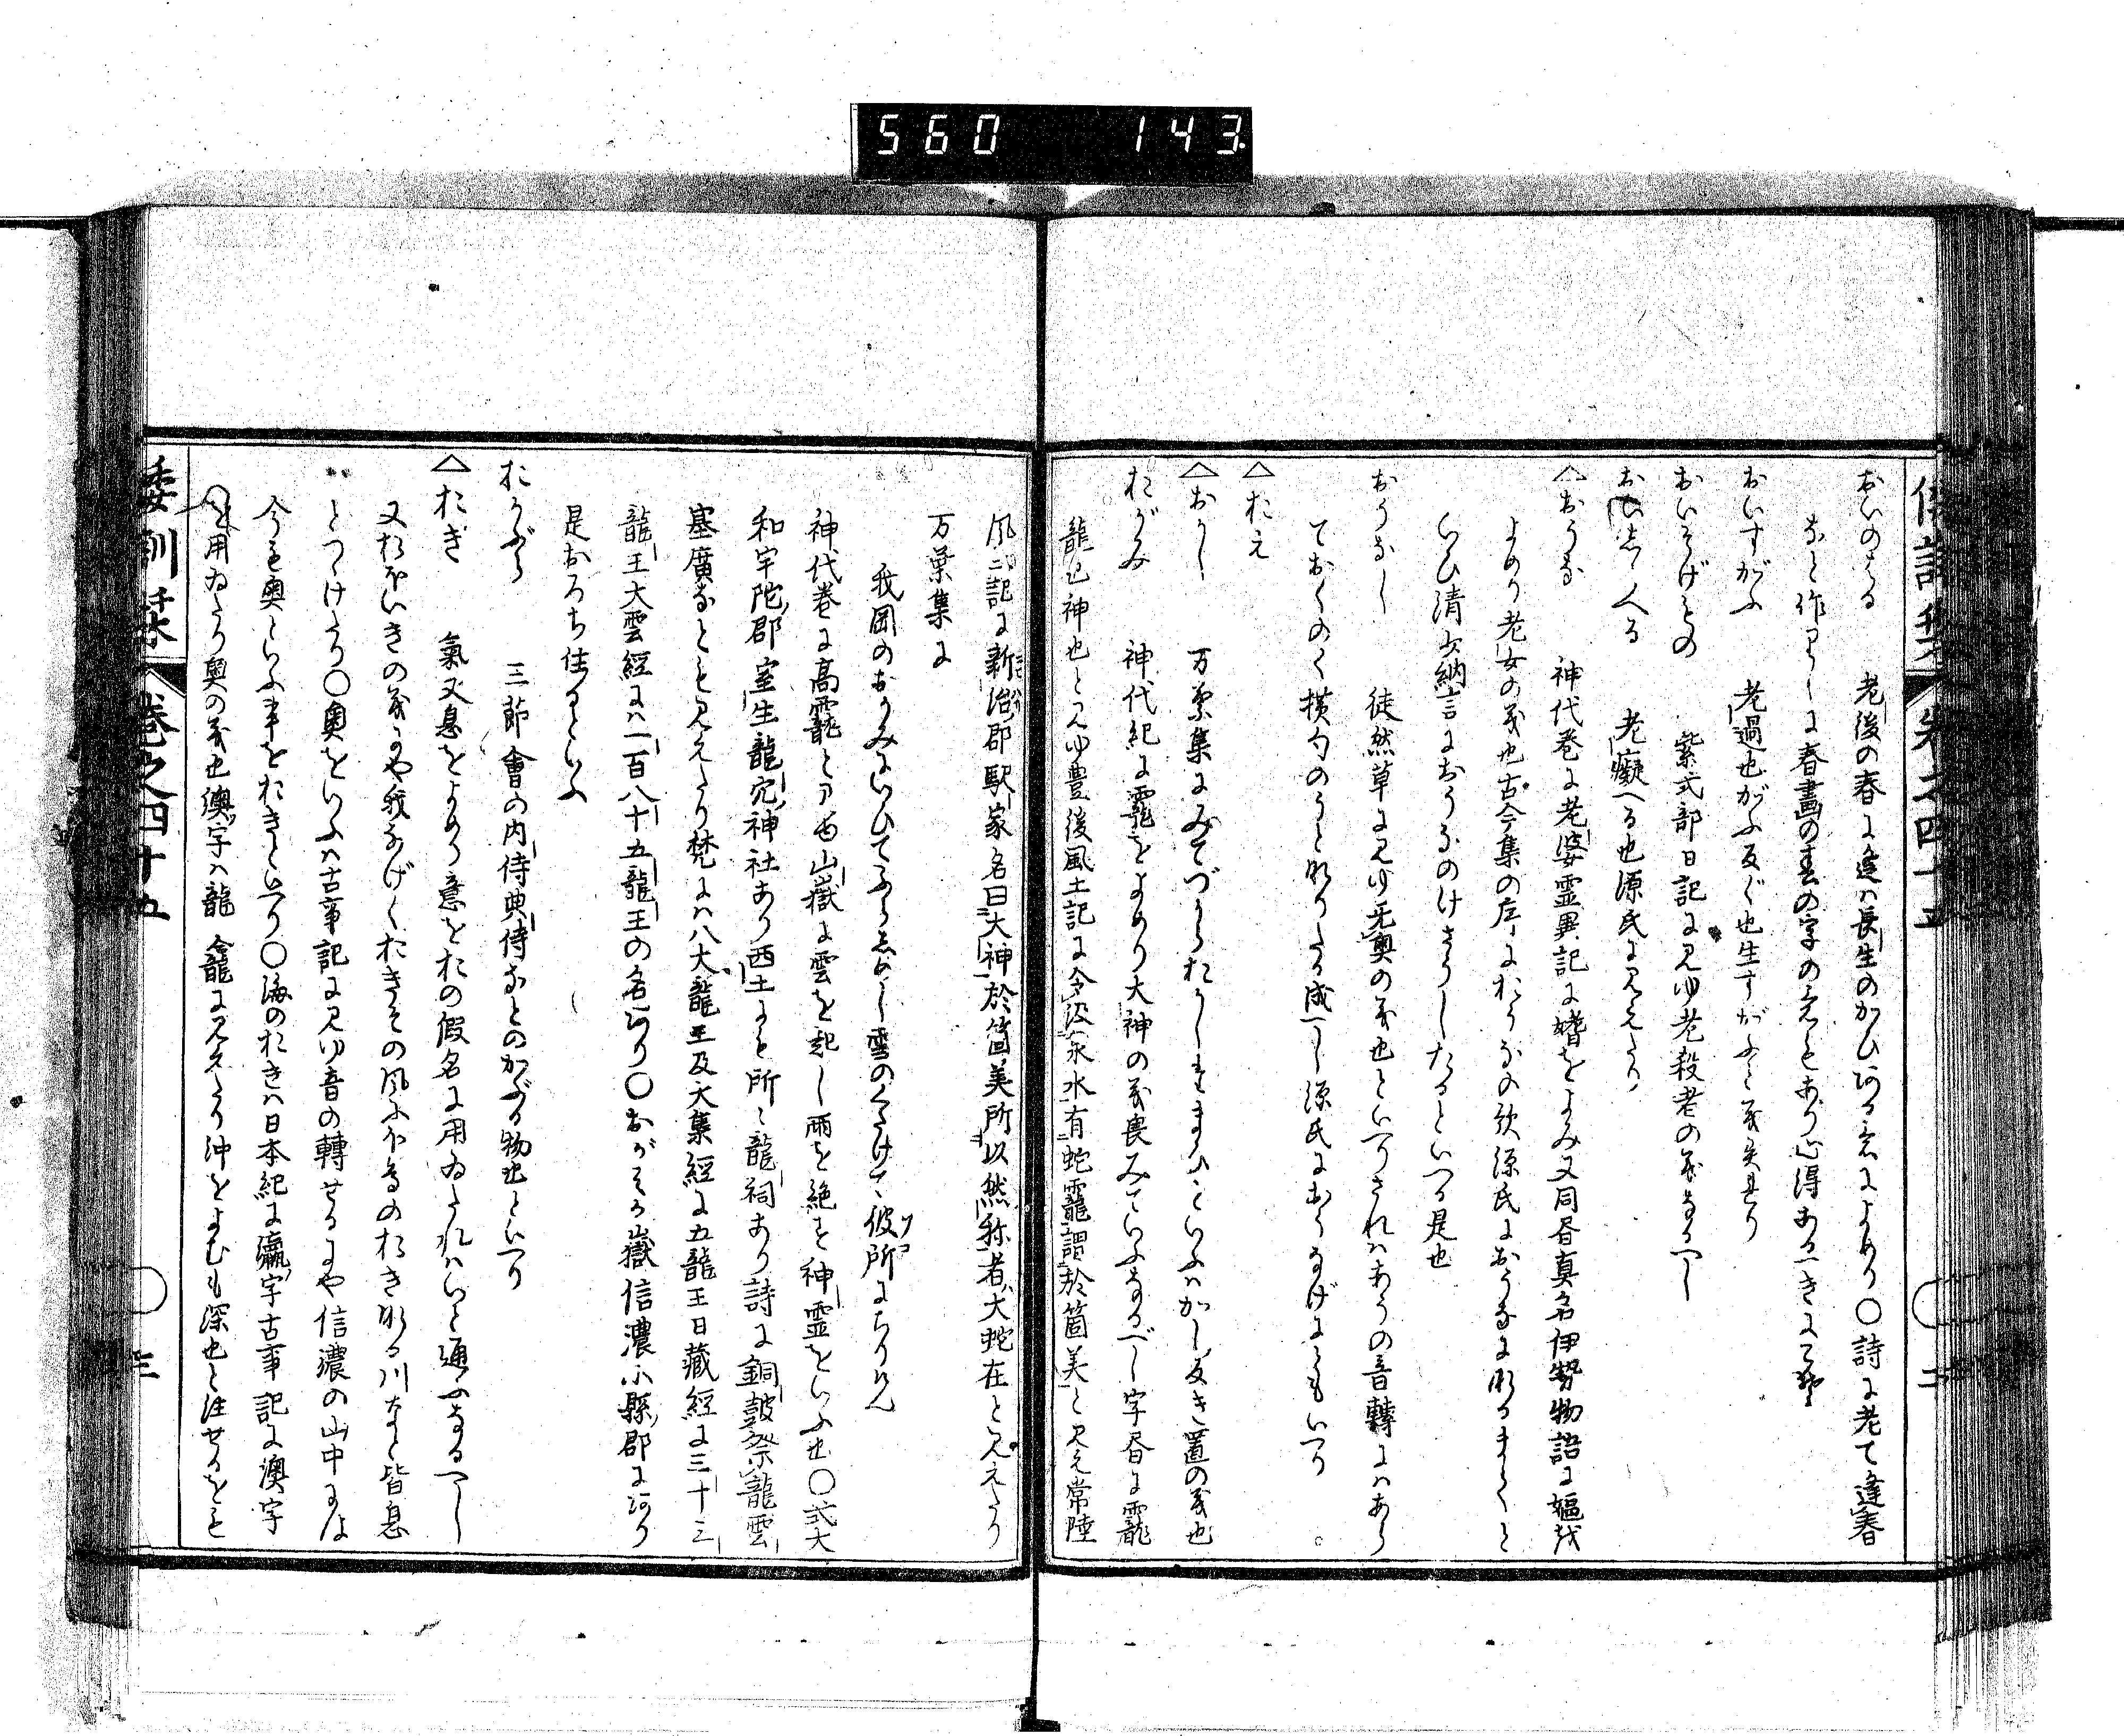 560 143
おいのはる 老後の春に逢は長生のかひある意によめり〇詩に老て逢春
なと作りしに春畫の春の字の意もあり心得あるへきにこそ
おいすがふ 老過也がふ反ぐ也生すがふと義異り
おいそげもの 紫式部日記に見ゆ老殺者の義なるへし
おひしへる 老癡へる也源氏に見えたり
△おうな 神代巻に老婆霊異記に嫗をよみ又同昏真名伊勢物語に嫗
よめり老女の義也古今集の左におうなの歌源氏におうなに
いひ清少納言におうなのけさうしたるといへる是也
おうなし 徒然草に見ゆ无奧の義也といへりされはあうの音轉にはあら
ておくのく横勺のうとなりたる成へし源氏におうなげにともいへり
△おえ
△おかし 万葉集にみてづからおかしたまひといふハかし反き置の義也
おがみ 神代紀に龗をよめり大神の義畏みていふなるべし字昏に龗
龍也神也と見ゆ豊後風土記に令汲泉水有蛇龗謂於箇美と見え常陸
風土記に新治郡駅家名曰大神於箇美所以然称者大蛇在と見えたり
万葉集に
我岡のおかみにいひてふらしめし雪のくたけて彼所にちりけん
神代巻に高龗とあるは山嶽に雲を起し雨を絶を神霊をいふ也〇式大
和宇陀郡室生龍穴神社あり西土にも所々龍祠あり詩に銅皷祭龍雲
塞廣なとも見えたり梵には八大龍王及大集経に五龍王日藏経に三十三
龍王大雲経には一百八十五龍王の名あり〇おがみか嶽信濃小縣郡にあり
是おろち住るといふ
おかぶり 三節會の内侍典侍なとのかぶる物也といへり
△おき 氣又息をよめり意をおの假名に用ゐたれハいと通ふなるへし
又おほいきの義にや我なげくおきその風ふかふのおきなる川なと皆息
とつけたり〇奧をいふハ古事記に見ゆ音の轉せるにや信濃の山中には
今も奧といふ事をおきといへり〇海のおきハ日本紀に瀛字古事記に澳字
を用ゐたり奧の義也澳字ハ龍龕に見えたり沖をよむも深也と注せるをも
倭訓栞 巻之四十五 二
倭訓栞 巻之四十五 三